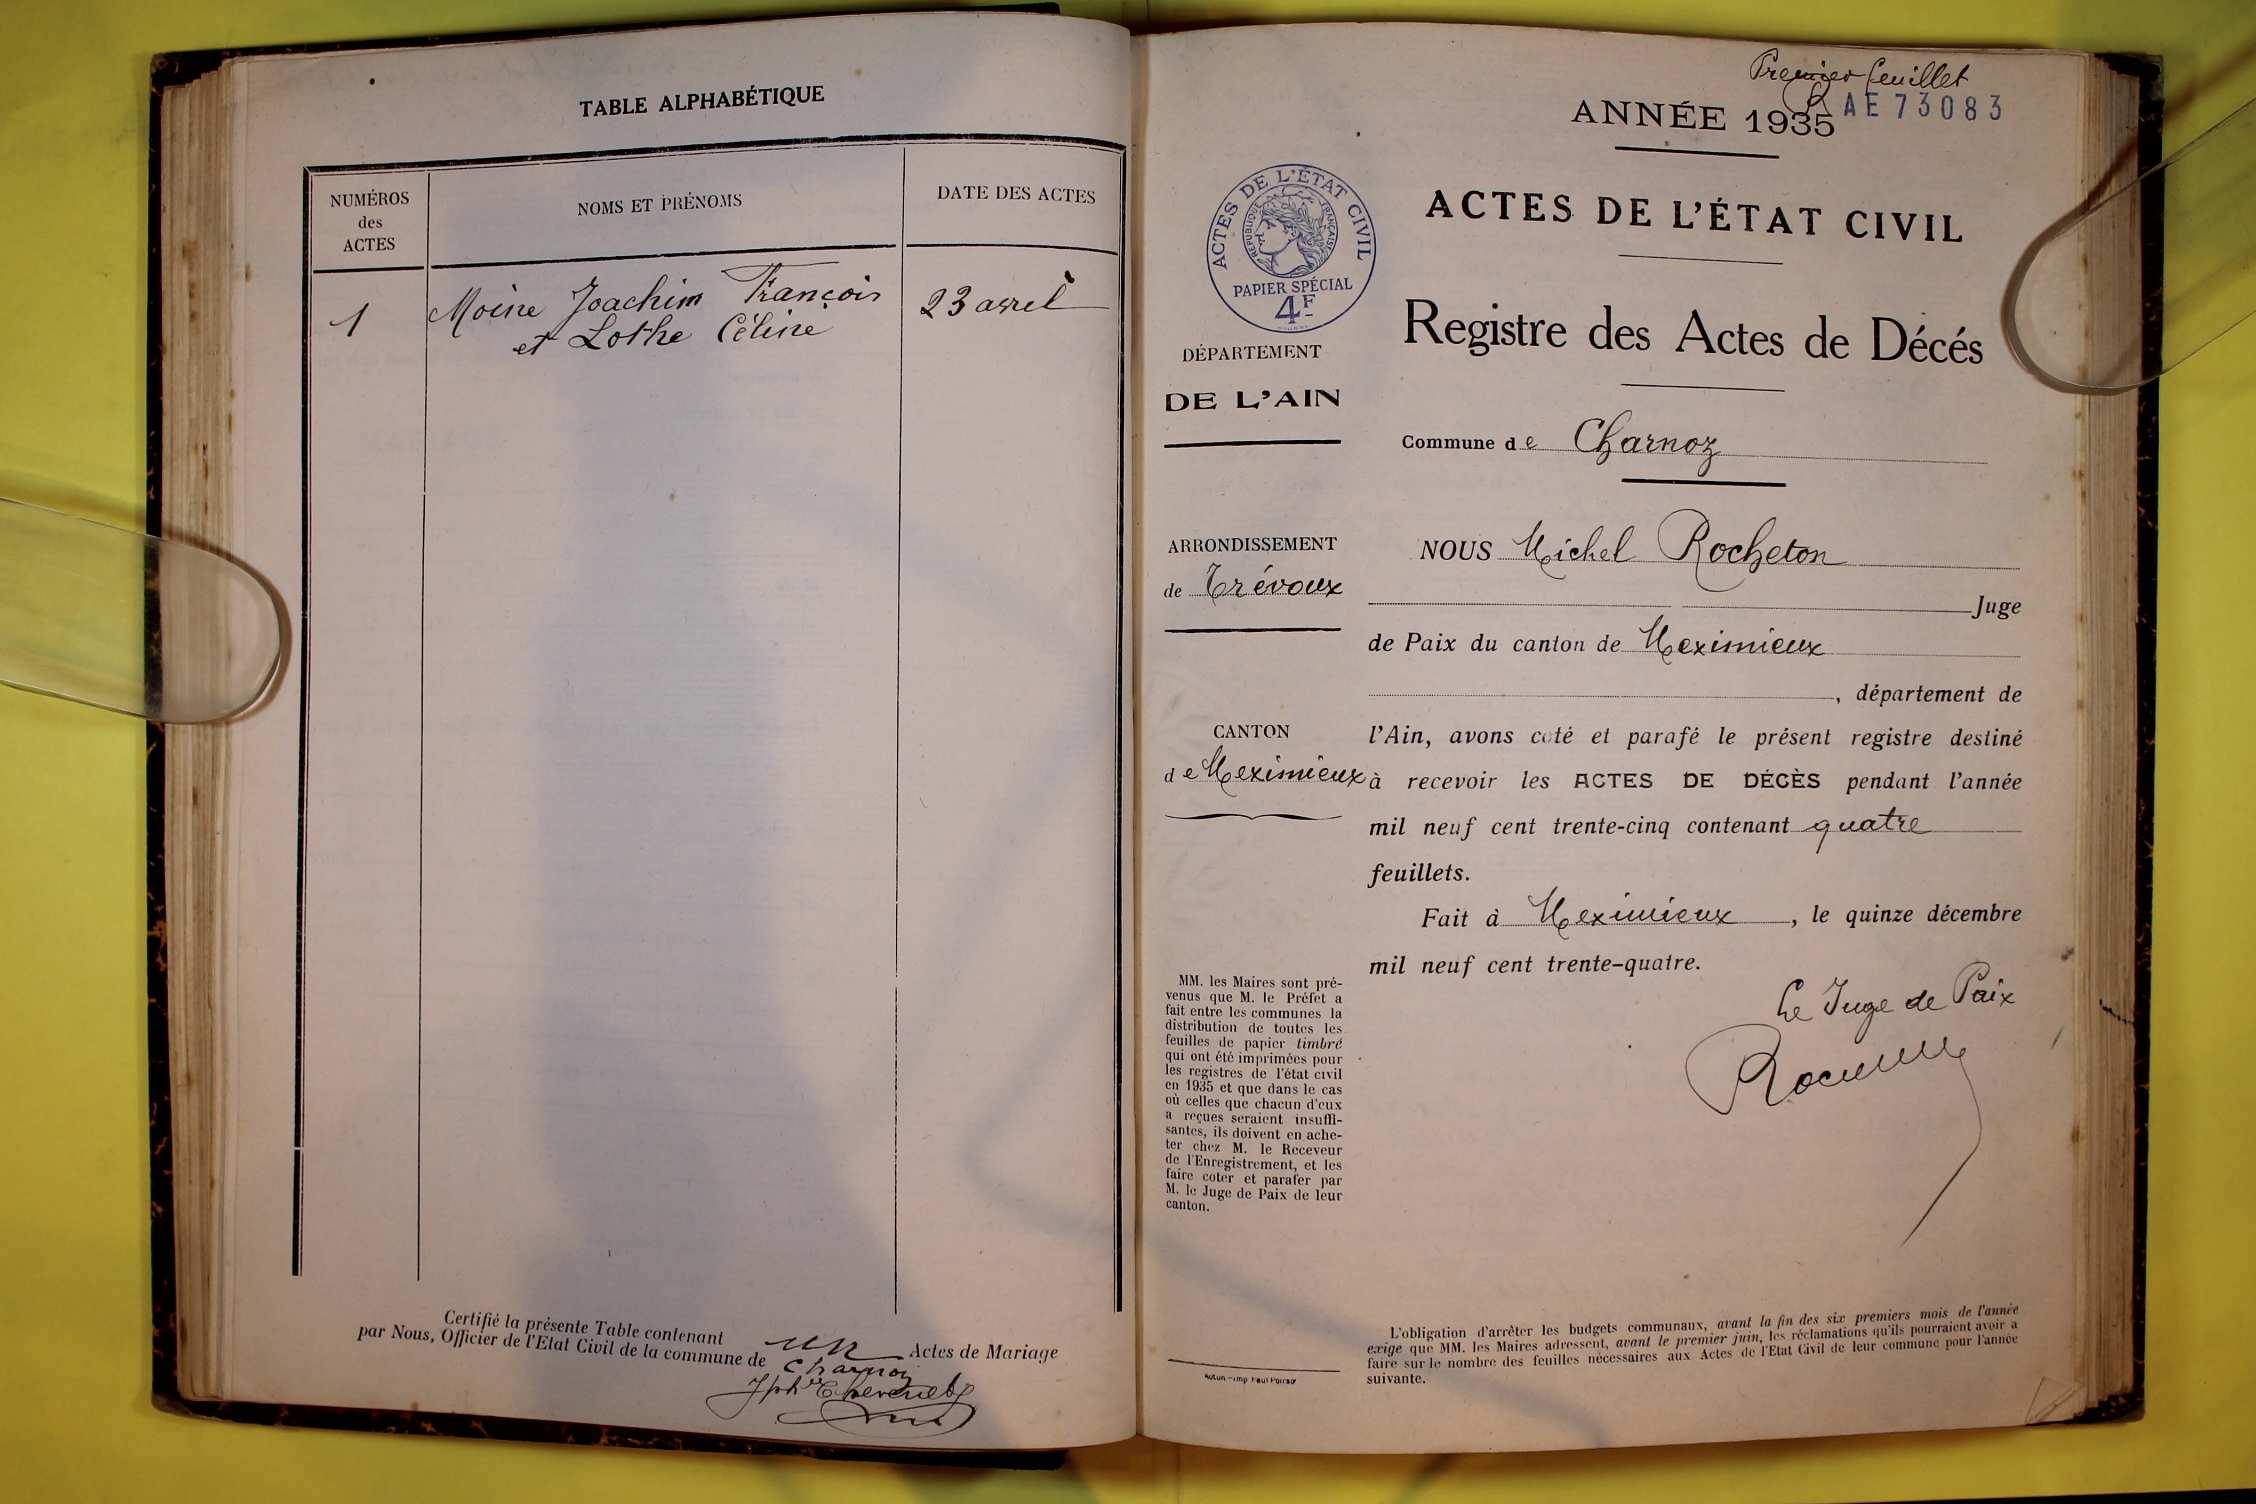 TABLE ALPHABÉTIQUE
NUMÉROS
des
ACTES
NOMS ET PRÉNOMS
DATE DES ACTES
1
Moine Joachim François
et Lothe Céline
23 avril
Certifié la présente Table contenant un Actes de Mariage
par Nous, Officier de l'Etat Civil de la commune de Charnoz
Premier feuillet
AE 73083
ANNÉE 1935
ACTES DE L'ÉTAT CIVIL
RÉPUBLIQUE FRANÇAISE
PAPIER SPÉCIAL
4F
DÉPARTEMENT
DE L'AIN
ARRONDISSEMENT
de Trévoux
CANTON
de Meximieux
MM. les Maires sont pré-
venus que M. le Préfet a
fait entre les communes la
distribution de toutes les
feuilles de papier timbré
qui ont été imprimées pour
les registres de l'état civil
en 1935 et que dans le cas
où celles que chacun d'eux
a reçues seraient insuffi-
santes, ils doivent en ache-
ter chez M. le Receveur
de l'Enregistrement, et les
faire coter et parafer par
M. le Juge de Paix de leur
canton.
ACTES DE L'ÉTAT CIVIL
Registre des Actes de Décés
Commune de Charnoz
NOUS Michel Rocheton
Juge
de Paix du canton de Meximieux
, département de
l'Ain, avons coté et parafé le présent registre destiné
à recevoir les ACTES DE DÉCÈS pendant l'année
mil neuf cent trente-cinq contenant quatre
feuillets.
Fait à Meximieux, le quinze décembre
mil neuf cent trente-quatre.
Le Juge de Paix
L'obligation d'arrêter les budgets communaux, avant la fin des six premiers mois de l'année
exige que MM. les Maires adressent, avant le premier juin, les réclamations qu'ils pourraient avoir a
faire sur le nombre des feuilles nécessaires aux Actes de l'Etat Civil de leur commune pour l'année
suivante.